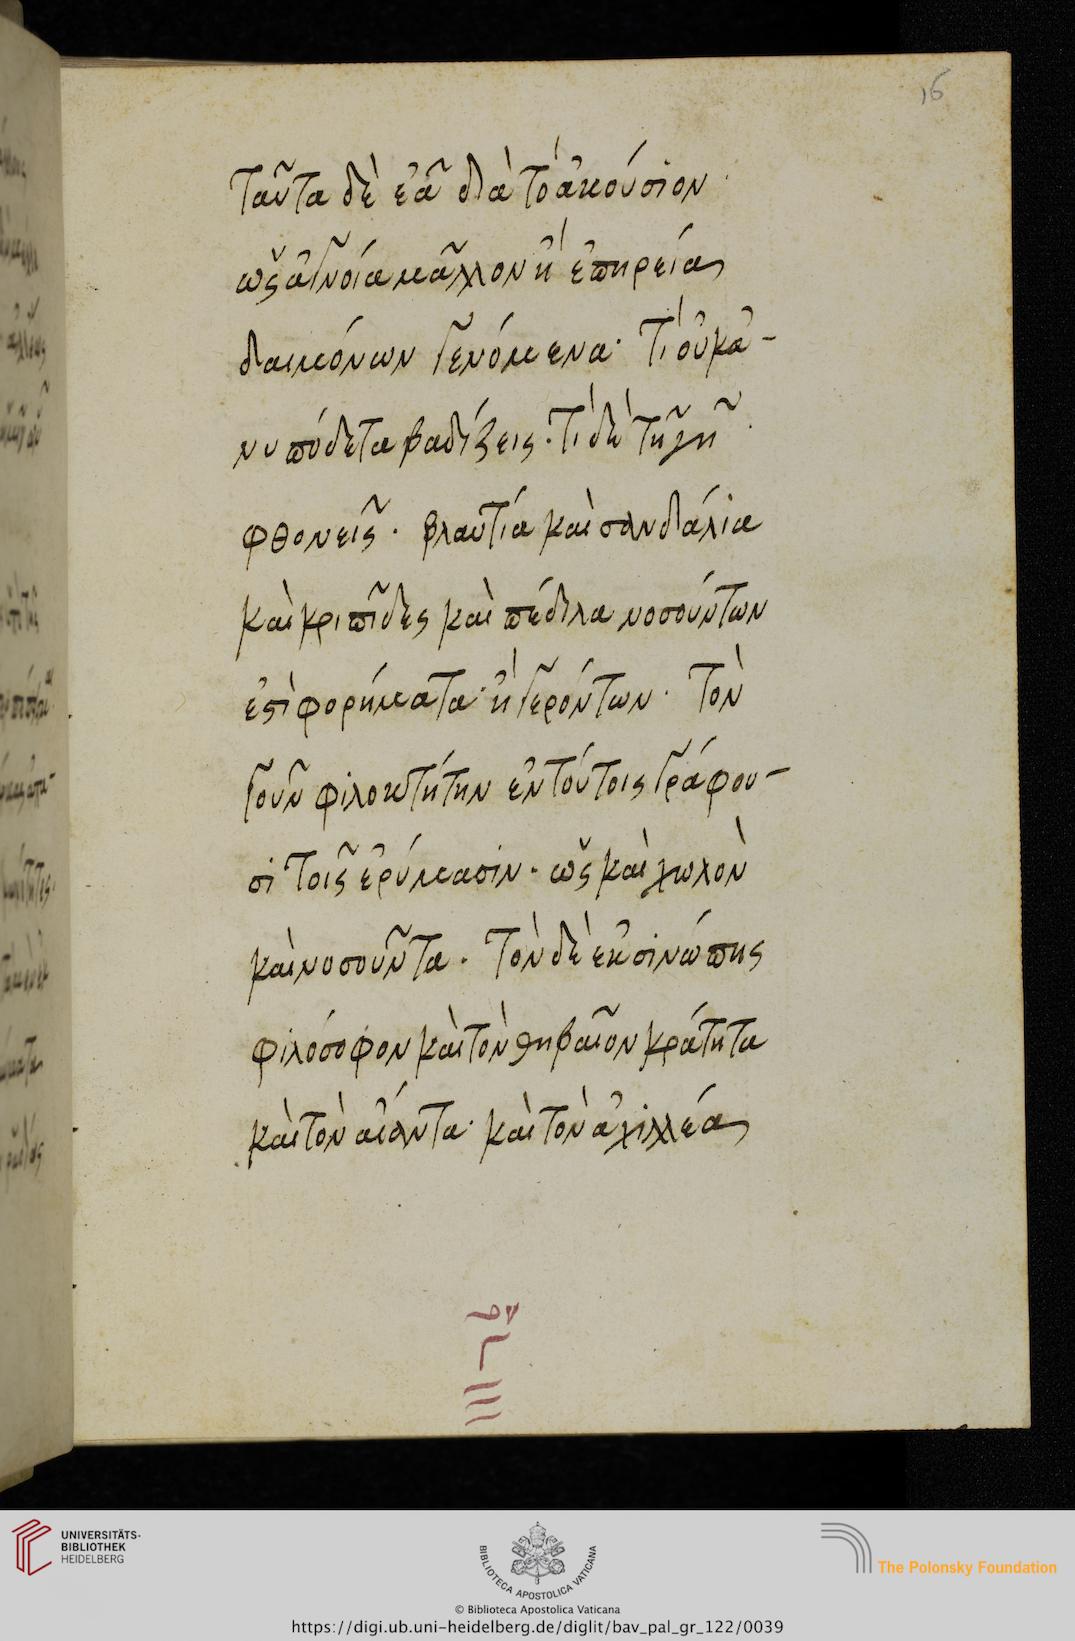 16
ταῦτα δὲ ἐᾶ διὰ τὸ ἀκούσιον
ὡς ἀγνοία μᾶλλον ἢ ἐπηρείας
δαιμόνων γενόμενα· τί οὐκ ἀ-
νυπόδετα βαδίζεις· τί δὲ τῆ γῆ
φθονεῖς· βλαυτία καὶ σανδάλια
καὶ κριπῖδες καὶ πέδιλα νοσούντων
ἐςὶ φορήματα· ἢ γερόντων· τὸν
γοῦν φιλοκτήτην ἐν τούτοις γράφου-
σι τοῖς ἐρύμασιν· ὡς καὶ χωλὸν
καὶ νοσοῦντα· τὸν δὲ ἐκ σινώπης
φιλόσοφον καὶ τὸν θηβαῖον κράτητα
καὶ τὸν αἴαντα· καὶ τὸν ἀχιλλέα
UNIVERSITÄTS-
BIBLIOTHEK
HEIDELBERG
BIBLIOTECA APOSTOLICA VATICANA
The Polonsky Foundation
© Biblioteca Apostolica Vaticana
https://digi.ub.uni-heidelberg.de/diglit/bav_pal_gr_122/0039